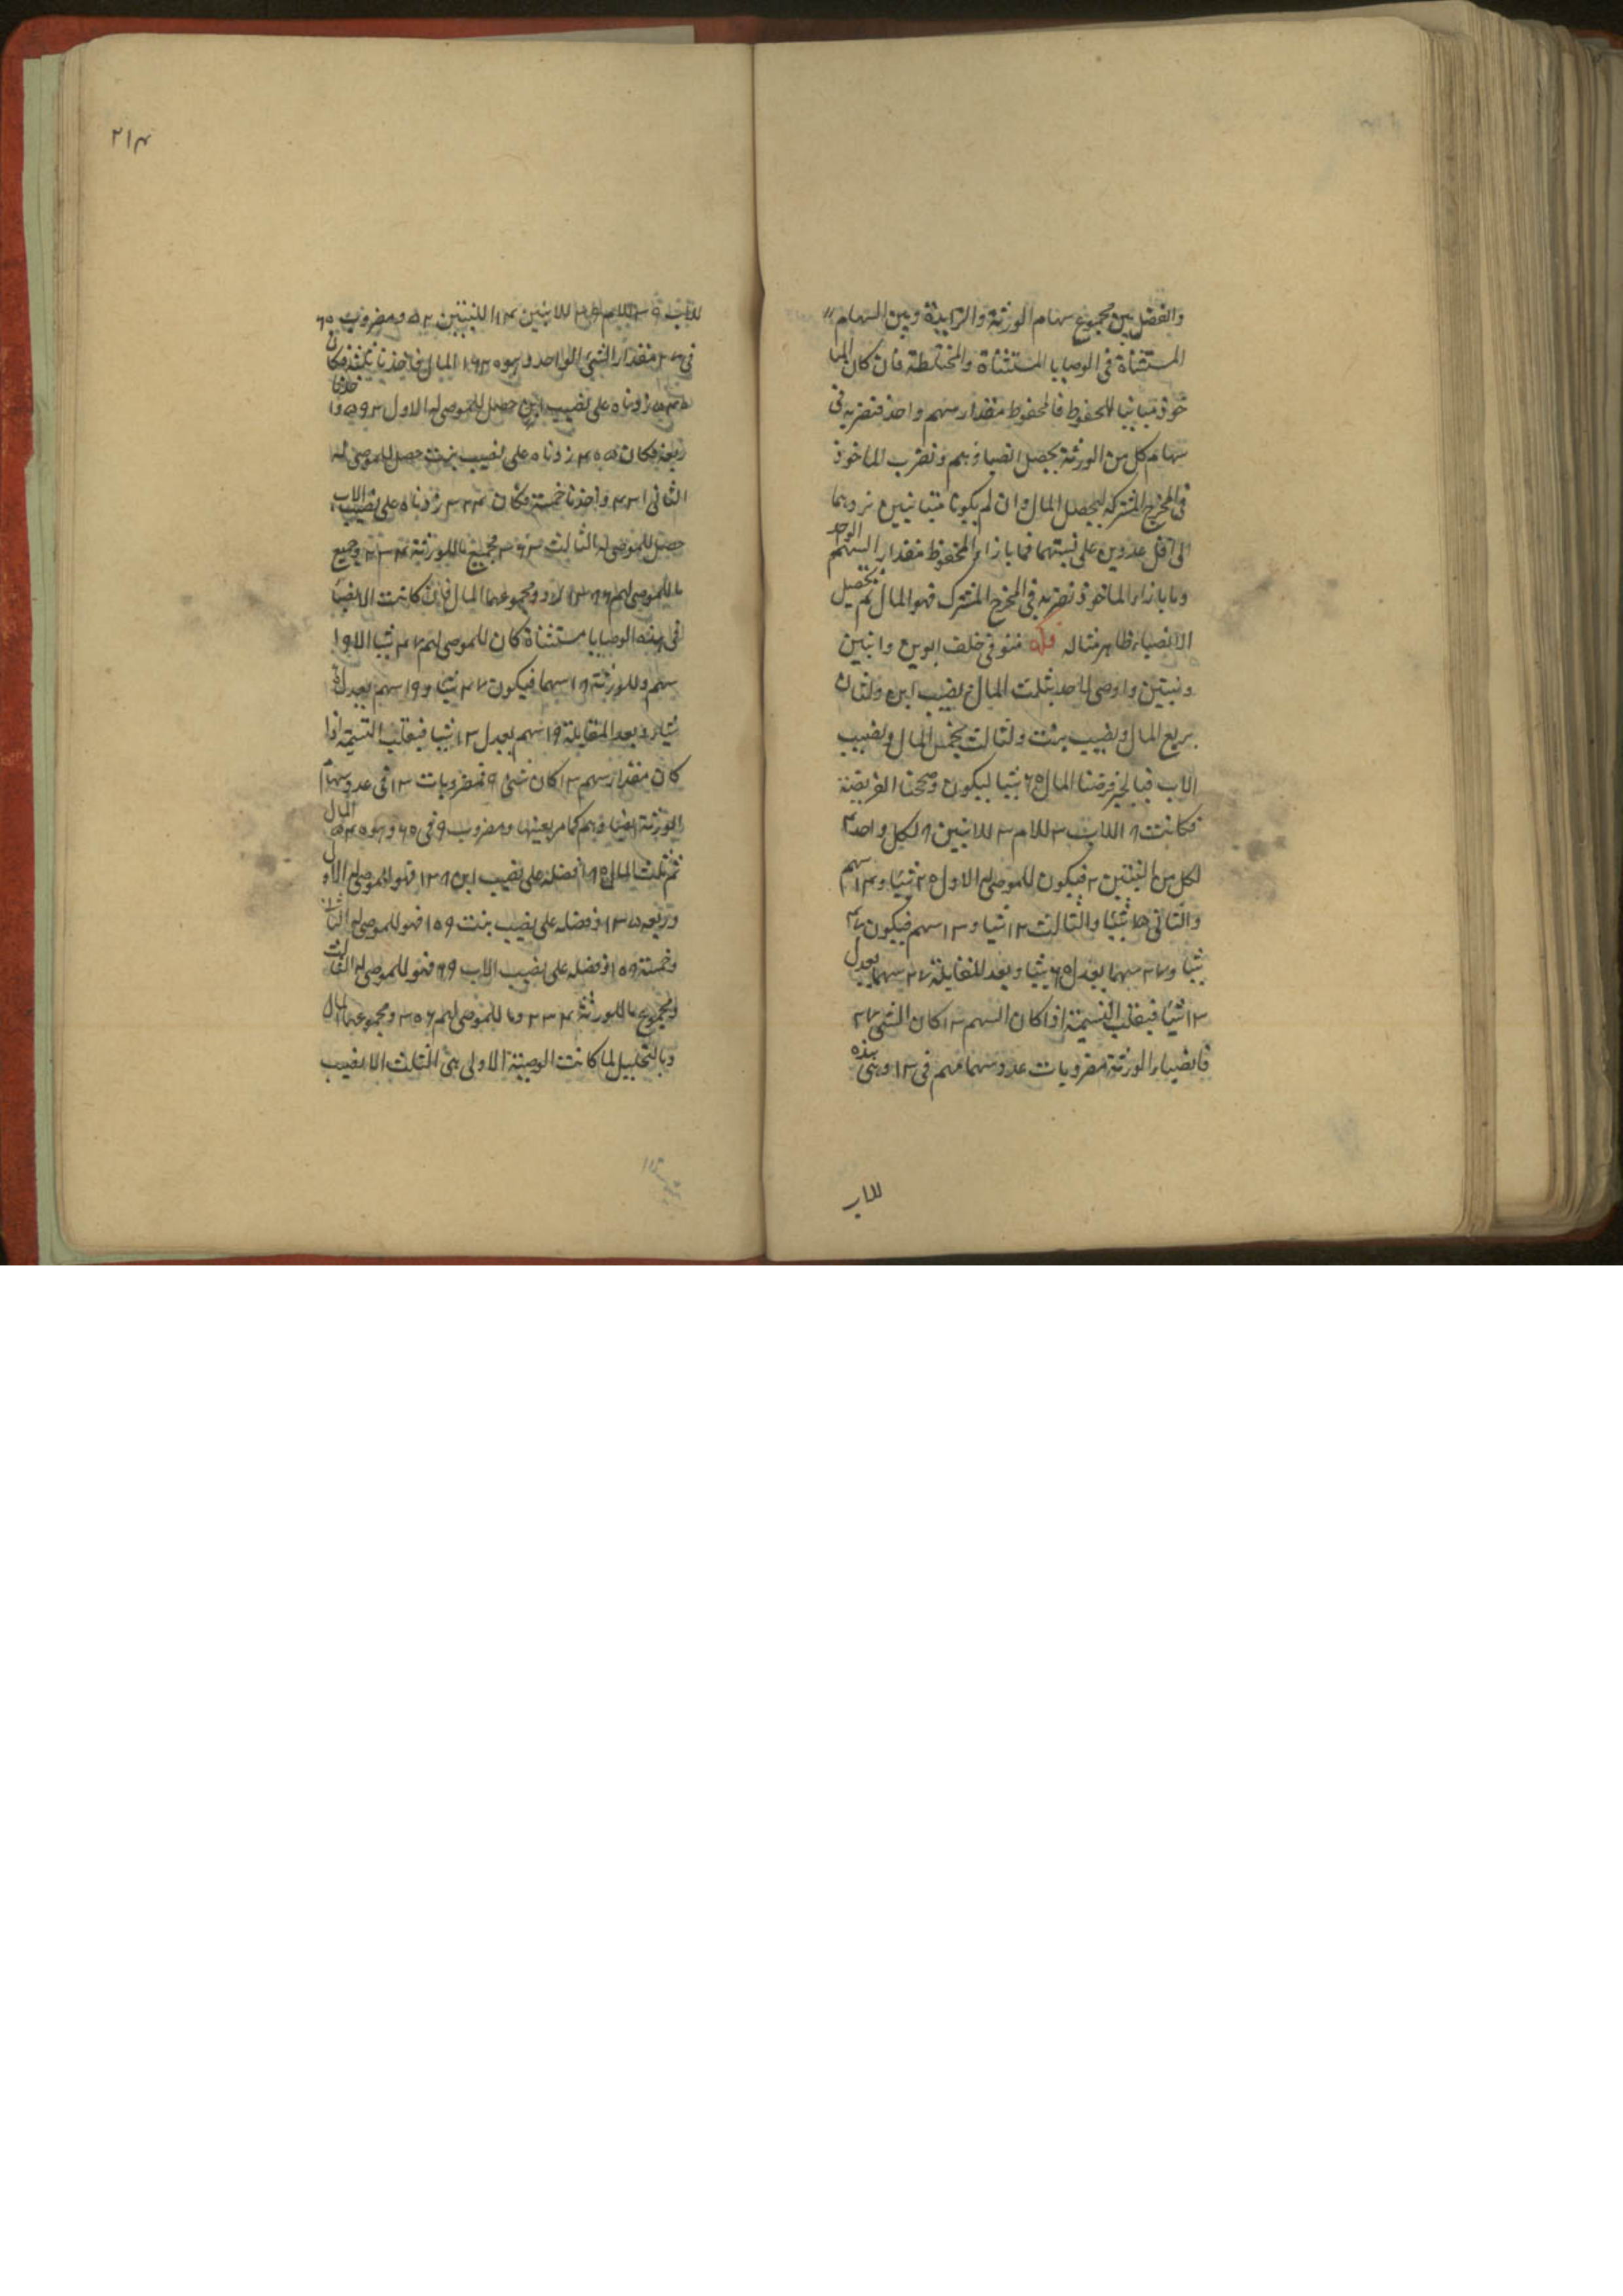 والفضل بين مجموع سهام الورثة والزايدة وبين السهام
المستثناة فى الوصايا المستثناة والمختلطة فان كان الما
خوذ مباينا للمحفوظ فالمحفوظ مقدار سهم واحد فنضربه فى
سهام كل من الورثة يحصل انصباؤهم ونضرب الماخوذ
فى المخرج المشترك ليحصل المال وان لم يكونا متباينين نردهما
الى اقل عددين على نسبتهما فما بازاء المحفوظ مقدار السهم الواحد
وما بازاء الماخوذ نضربه فى المخرج المشترك فهو المال ثم تحصيل
الانصباء ظاهر مثاله متوفى خلف ابوين وابنين
وبنتين واوصى لاحد بثلث المال ونصيب ابن ولثان
بربع المال ونصيب بنت ولثالث بخمس المال ونصيب
الاب فبالجبر فرضنا المال ٦٠ شيئا ليكون وصححنا الفريضة
فكانت ١٨ للاب ٣ للام ٣ للابنين ٨ لكل واحد ٤
لكل من البنتين ٢ فيكون للموصى له الاول ٢٠ شيئا و ٤ سهم
والثانى ١٥ شيئا والثالث ١٢ شيئا و ٣ سهم فيكون ٤٧
شيئا و ٢٧ سهما يعدل ٦٠ شيئا وبعد المقابلة ٢٧ سهما يعدل
١٣ شيئا فبقلب القسمة اذا كان السهم ١٣ كان الشئ ٢٧
فانصباء الورثة مضروبات عدد سهامهم فى ١٣ وهى هذه
للاب
٢١٤
للاب ٣٩ للام ٣٩ للابنين ١٠٤ للبنتين ٥٢ ومضروب ٦٠
فى ٢٧ مقدار الشئ الواحد وهو ١٦٢٠ المال فاخذنا ثلثه فكان
٥٤٠ زدناه على نصيب ابن حصل للموصى له الاول ٥٩٢ واخذنا
ربعه فكان ٤٠٥ زدناه على نصيب بنت حصل للموصى له
الثانى ٤٣١ واخذنا خمسة فكان ٣٢٤ زدناه على نصيب الاب
حصل للموصى له الثالث ٣٦٣ فجميع ما للورثة ٢٣٤ وجميع
ما للموصى لهم ١٣٨٦ ومجموعهما المال فان كانت الانصباء
فى هذه الوصايا مستثناة كان للموصى لهم ٤٧ شيئا الا ٩
سهم وللورثة ١٨ سهما فيكون ٤٧ شيئا و ٩ سهم يعدل ٦٠
شيئا وبعد المقابلة ٩ سهم يعدل ١٣ شيئا فبقلب القسمة اذا
كان مقدار سهم ١٣ كان شئ ٩ فمضروبات ١٣ فى عدد سهام
الورثة انصباؤهم كما مر بعينها ومضروب ٩ فى ٦٠ وهو ٥٤٠ المال
ثم ثلث المال ١٨٠ فضله على نصيب ابن ١٢٨ فهو للموصى له الاول
وربعه ١٣٥ وفضله على نصيب بنت ١٠٩ فهو للموصى له الثانى
وخمسة ١٠٨ وفضله على نصيب الاب ٦٩ فهو للموصى له الثالث
ومجموع ما للورثة ٢٣٤ وما للموصى لهم ٣٠٦ ومجموعهما المال
وبالتحليل لما كانت الوصية الاولى هى الثلث الا نصيب